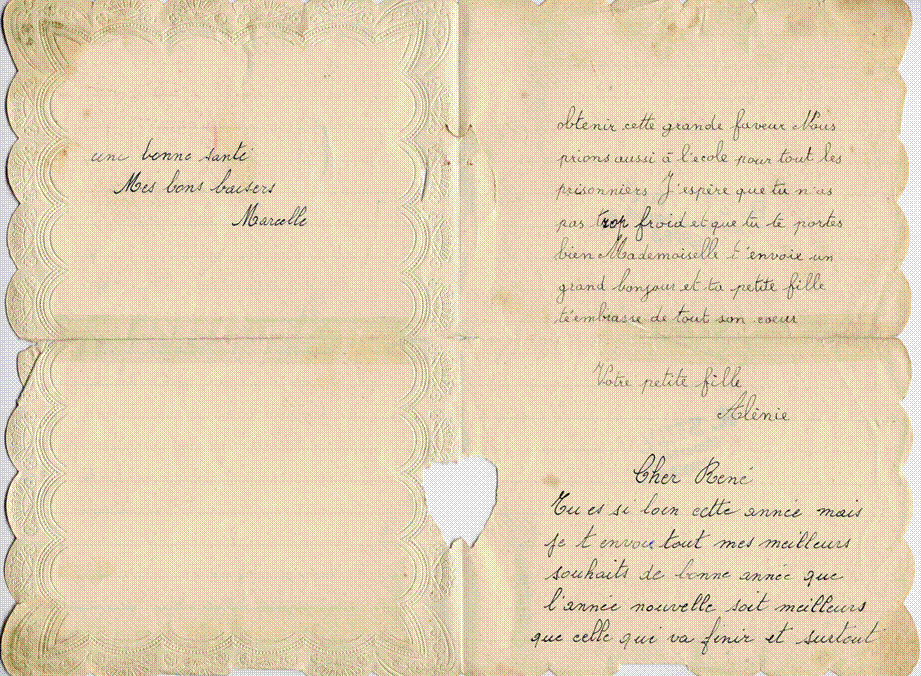 obtenir cette grande faveur Nous
prions aussi à l'école pour tout les
prisonniers J'espère que tu n'as
pas trop froid et que tu te portes
bien Mademoiselle t'envoie un
grand bonjour et ta petite fille
t'embrasse de tout son coeur
Votre petite fille
Cher René
Tu es si loin cette année mais
je t envoie tout mes meilleurs
souhaits de bonne année que
l'année nouvelle soit meilleurs
que celle qui va finir et surtout
une bonne santé
Mes bons baisers
Marcelle